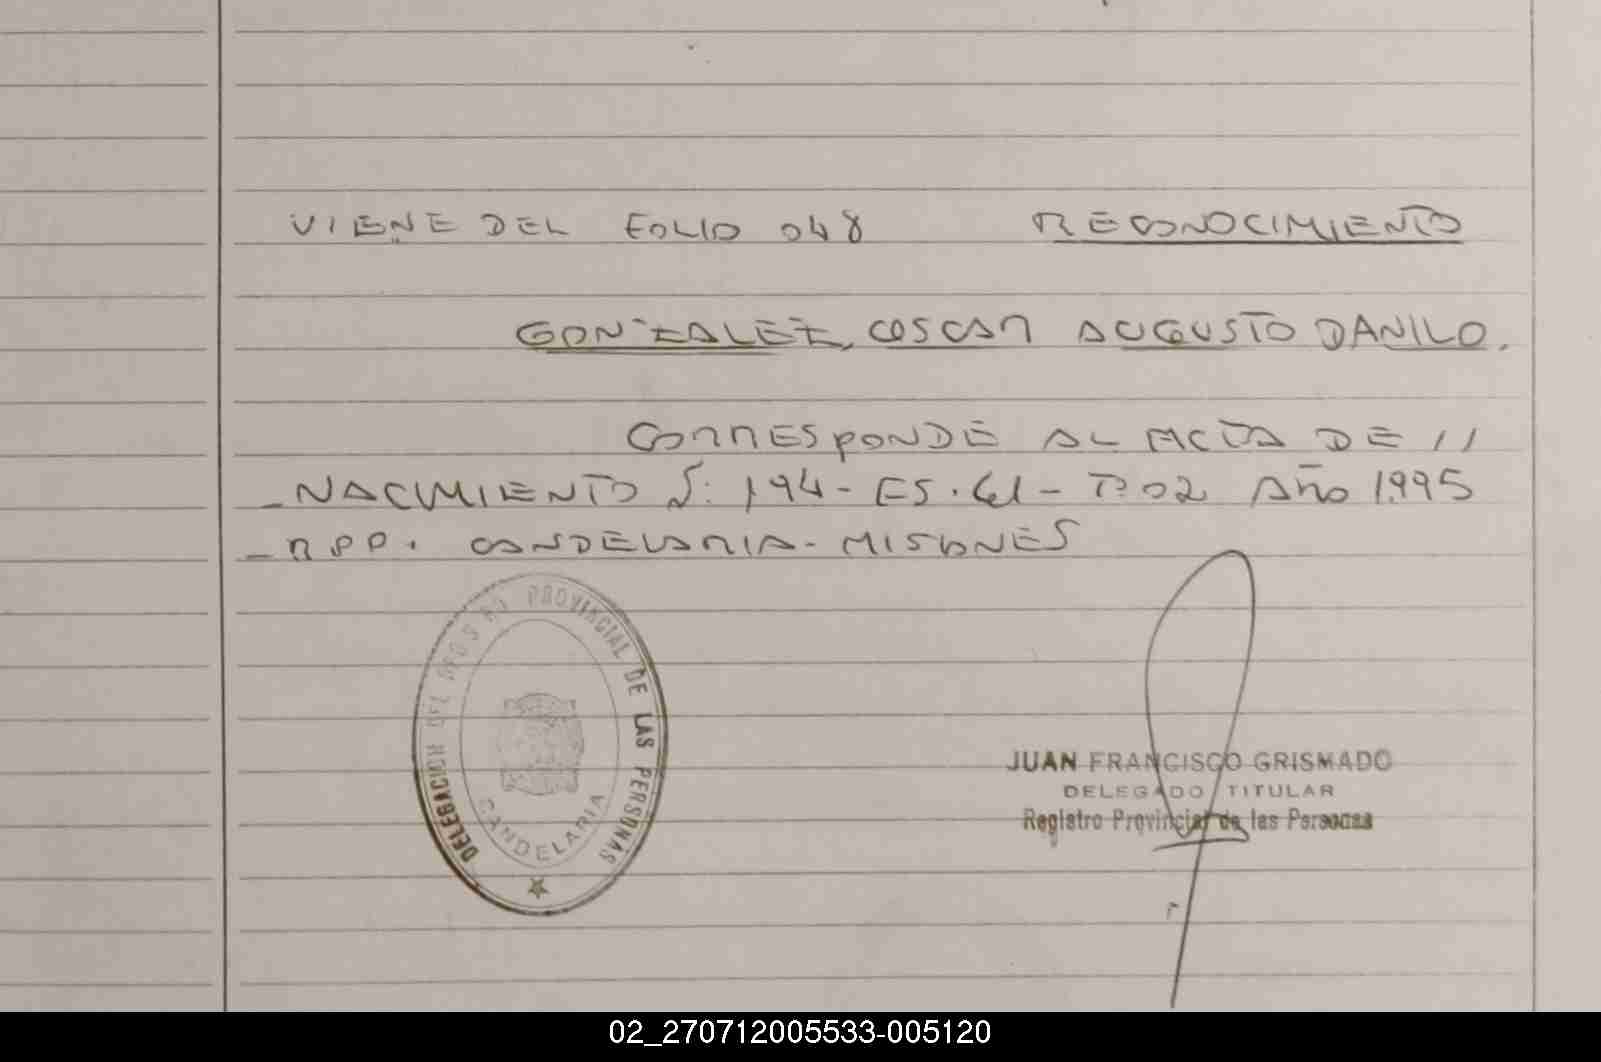 VIENE DEL FOLIO 048 RECONOCIMIENTO
GONZALEZ, OSCAR AUGUSTO DANILO.
CORRESPONDE AL ACTA DE //
_NACIMIENTO N: 194- FS. 61- T:02 Año 1995
_RPP. CANDELARIA- MISIONES
DELEGACION DEL REGISTRO PROVINCIAL DE LAS PERSONAS
CANDELARIA
JUAN FRANCISCO GRISMADO
DELEGADO TITULAR
Registro Provincial de las Personas
02_270712005533-005120